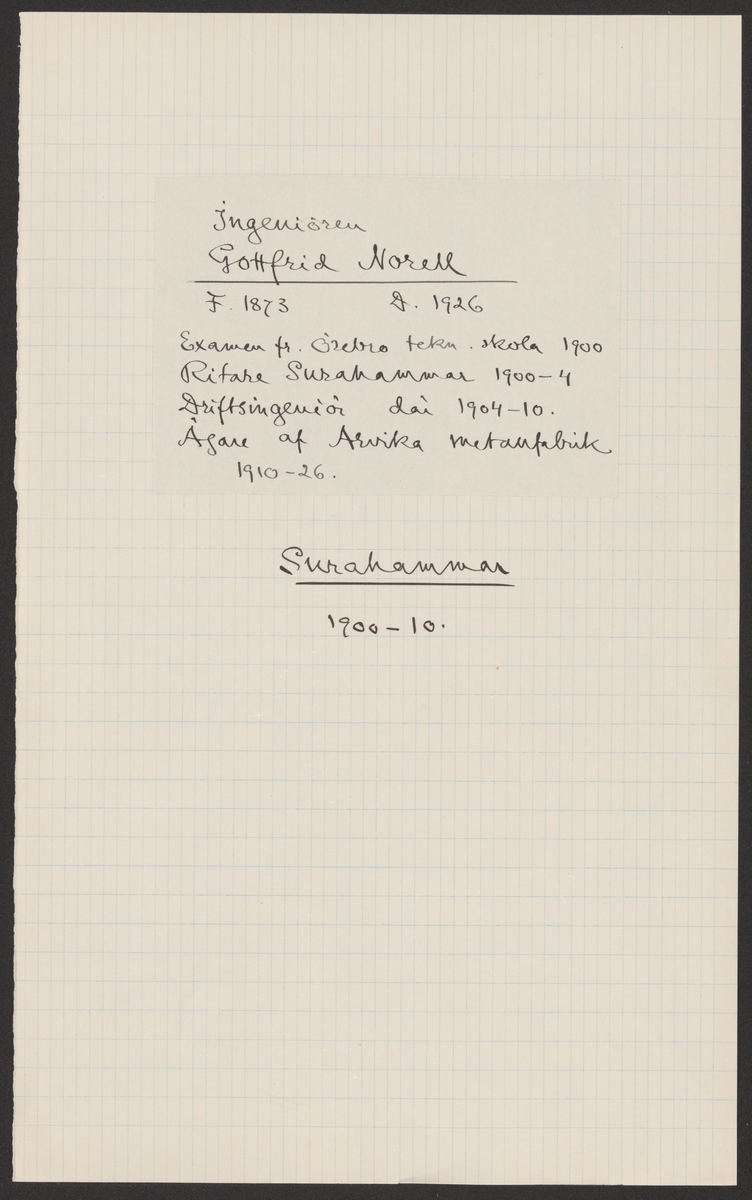 Ingeniören
Gottfrid Norell
F. 1873 D. 1926
Examen fr. Örebro tekn. skola 1900
Ritare Surahammar 1900–4
Driftsingeniör 1904–10.
Ägare af Arvika metallfabrik
1910–26.
Surahammar
1900–10.